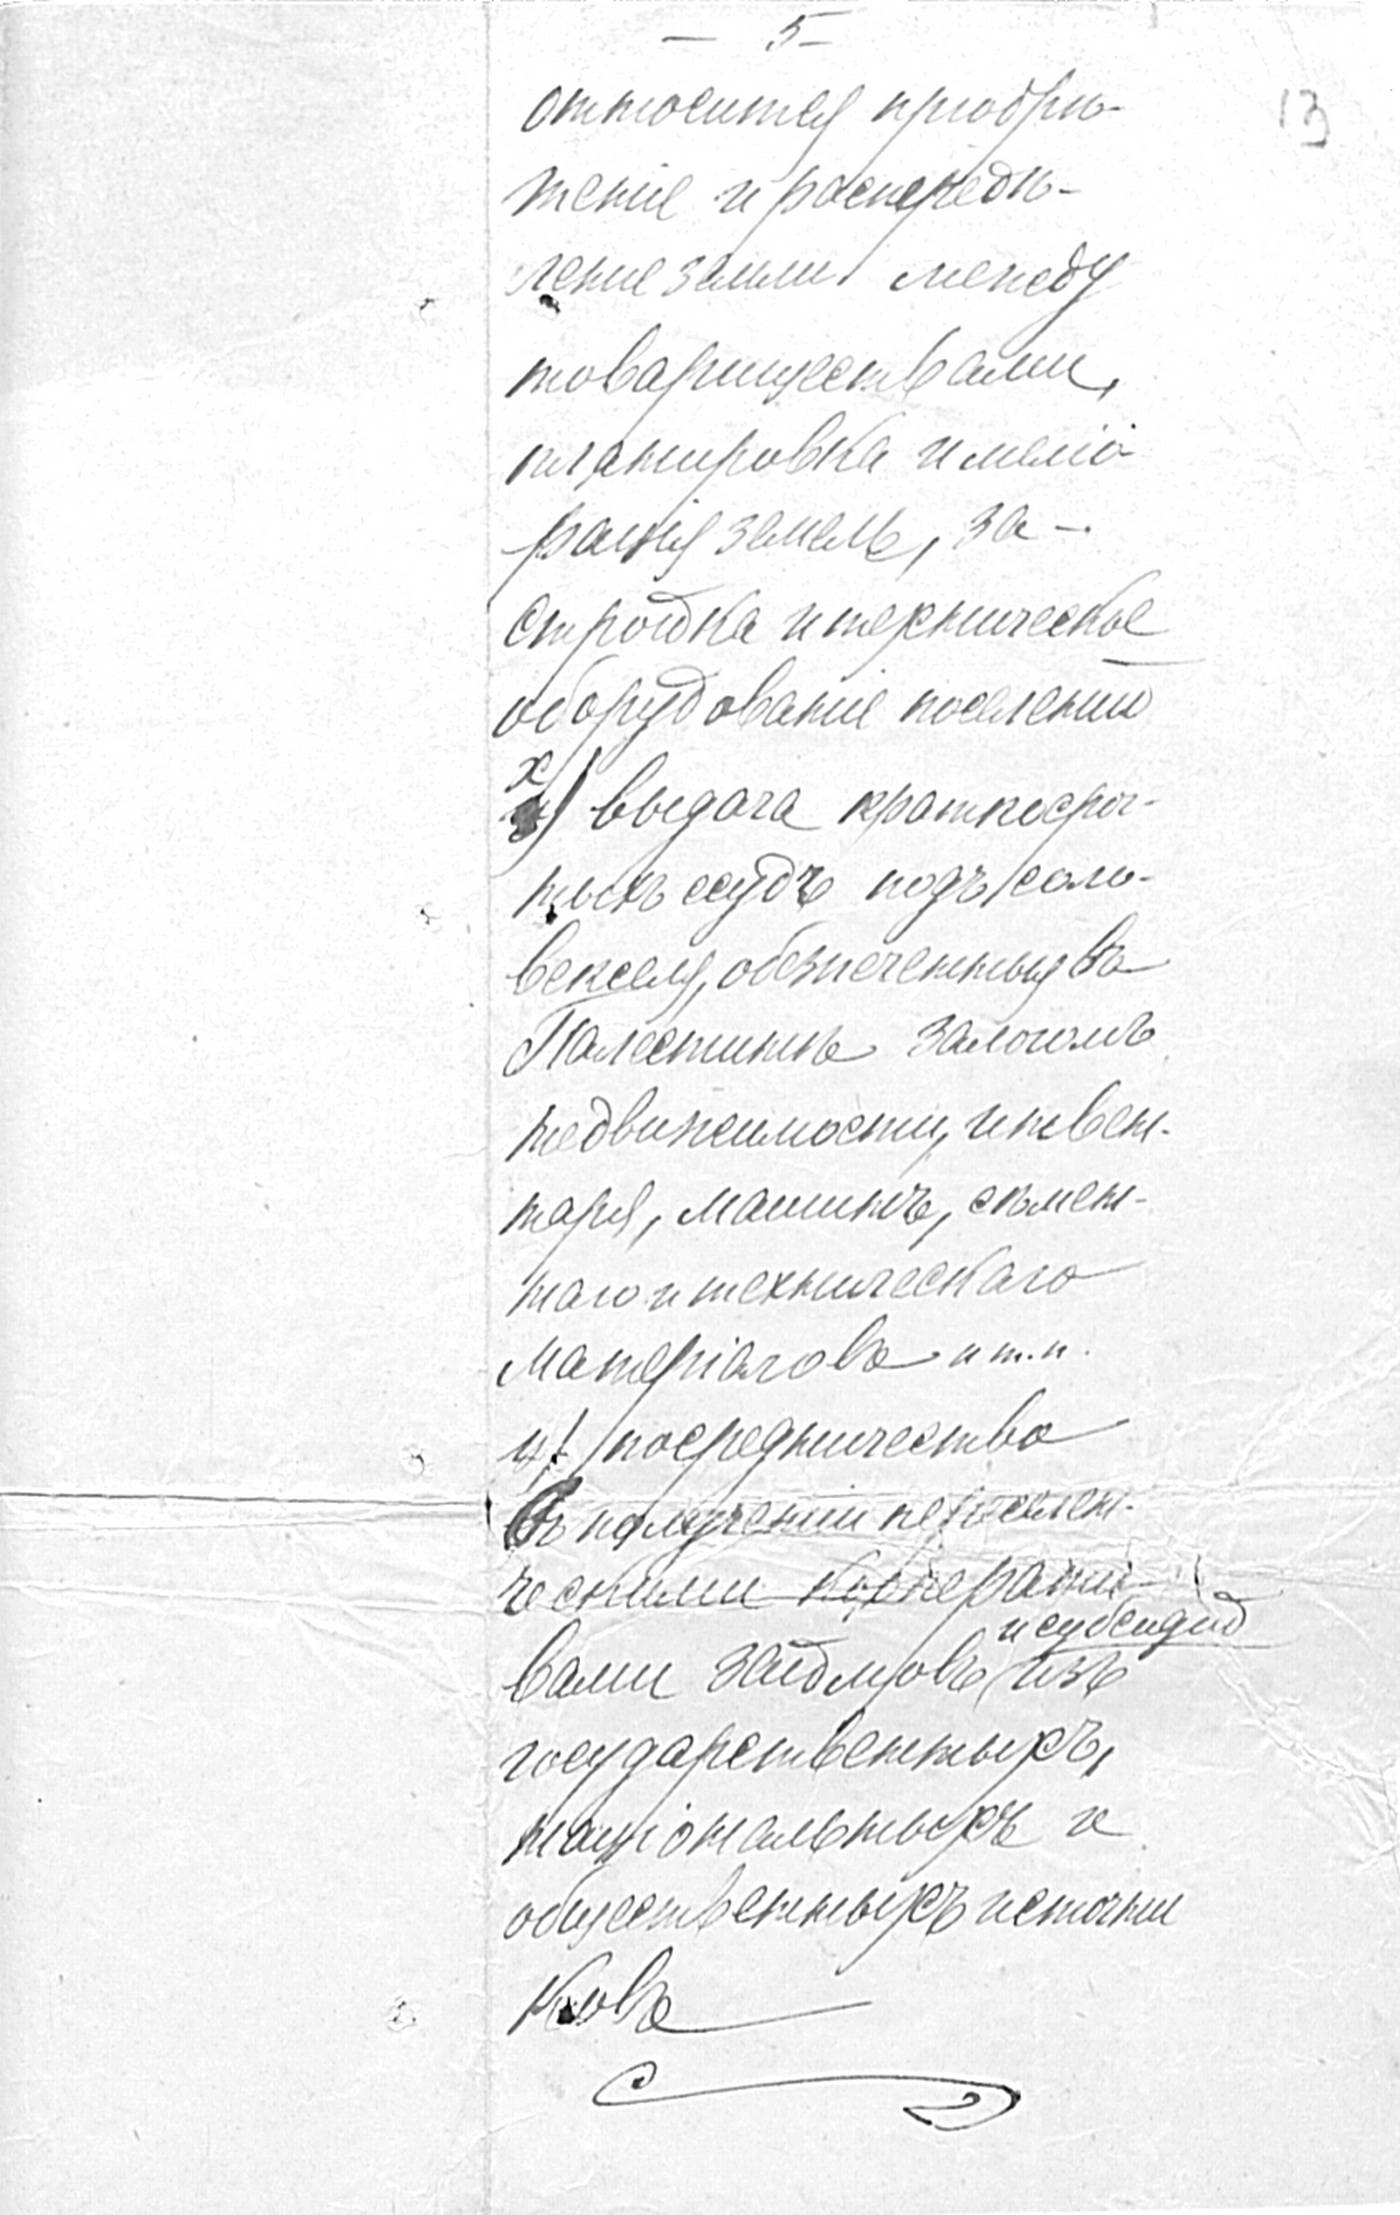 — 5 —
13
относится пріобрѣ-
теніе и распредѣ-
леніе земли между
товариществами,
планировка и меліо-
рація земель, за-
стройка и техническое
оборудованіе поселеній
х) выдача краткосроч-
ныхъ ссудъ подъ соло-
векселя, обезпеченныя въ
Палестинѣ залогомъ
недвижимости, инвен-
таря, машинъ, сѣмен-
наго и техническаго
матеріаловъ и т.п.
ц) посредничество
въ полученіи переселен-
ческими кооперати-
и субсидій
вами займовъ изъ
государственныхъ,
національныхъ и
общественныхъ источни
ковъ